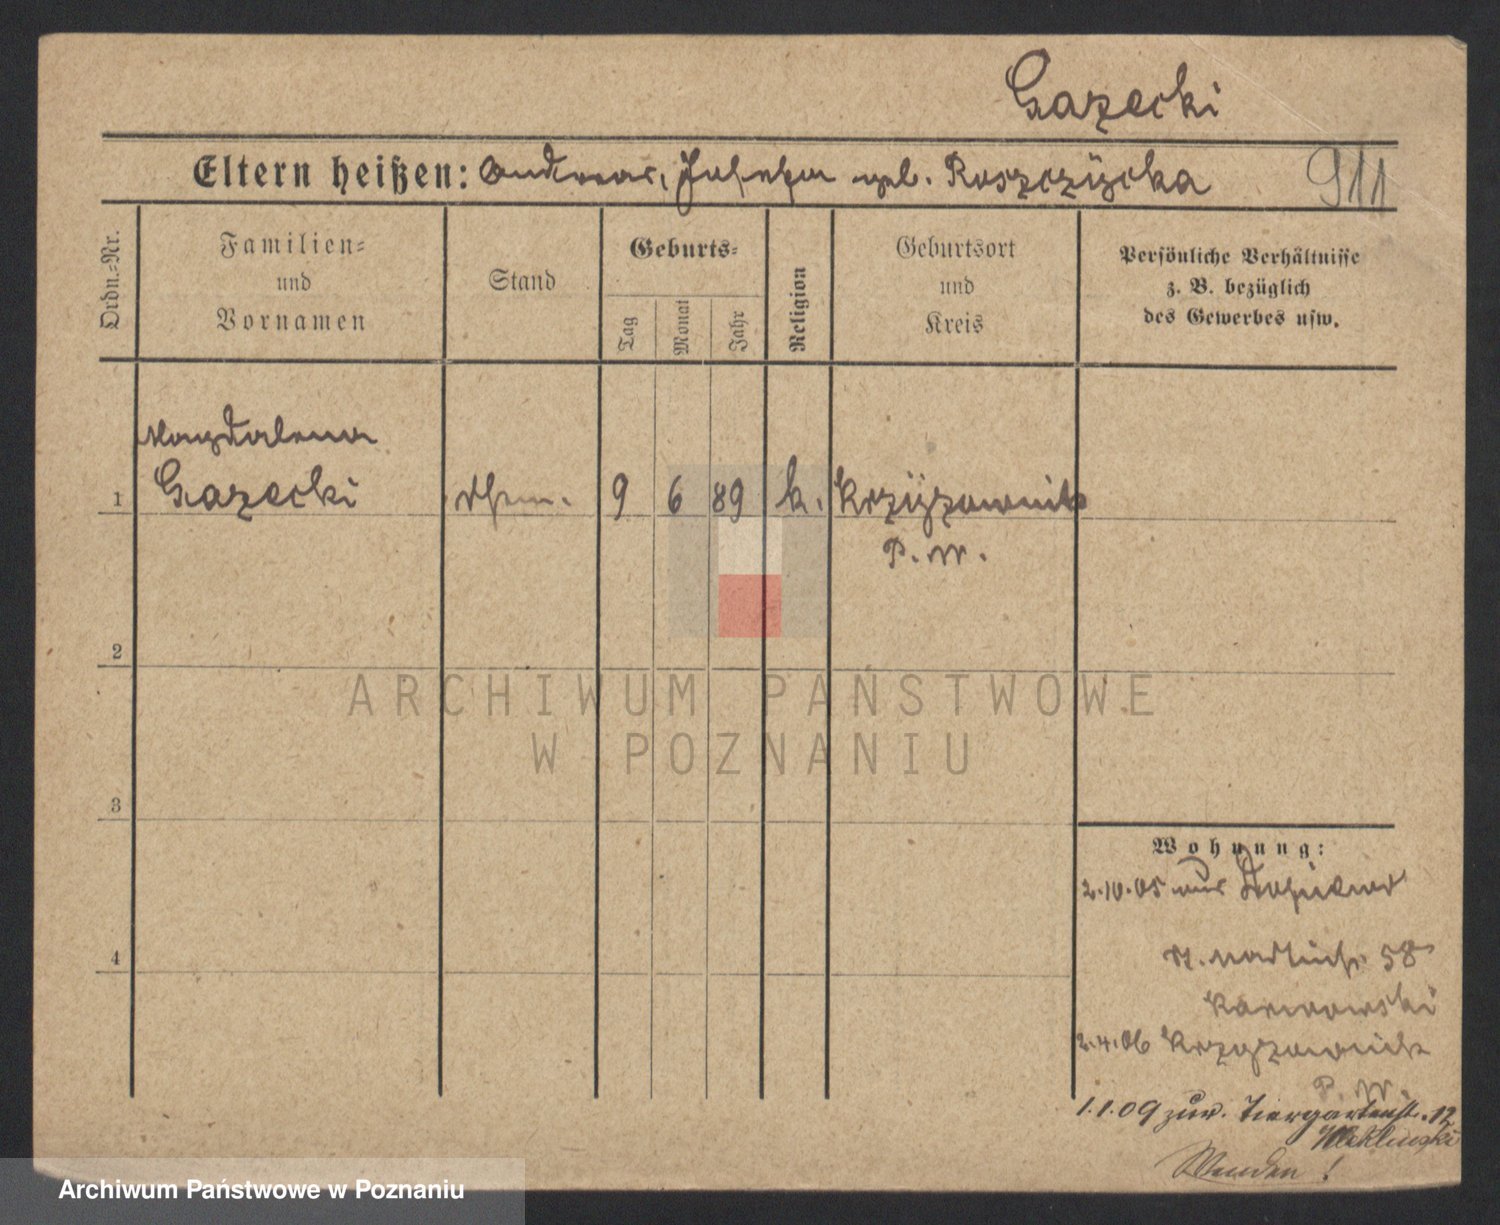 Gazecki
Eltern heißen: Andreas, Josefa geb. Roszczÿcka
911
Ordn.=Nr.
Familien=
und
Vornamen
Stand
Geburts=
Tag
Monat
Jahr
Religion
Geburtsort
und
Kreis
Persönliche Verhältnisse
z. B. bezüglich
des Gewerbes usw.
Magdalena
1 Gazecki 9 6 89 k. Krzÿzownik
P. W.
2
3
4
Wohnung:
2.10.05 aus
58
2.4.06 Krzyzownik
P. W.
1.1.09 zur. Tiergartenstr. 12
Wenden!
ARCHIWUM PAŃSTWOWE
W POZNANIU
Archiwum Państwowe w Poznaniu